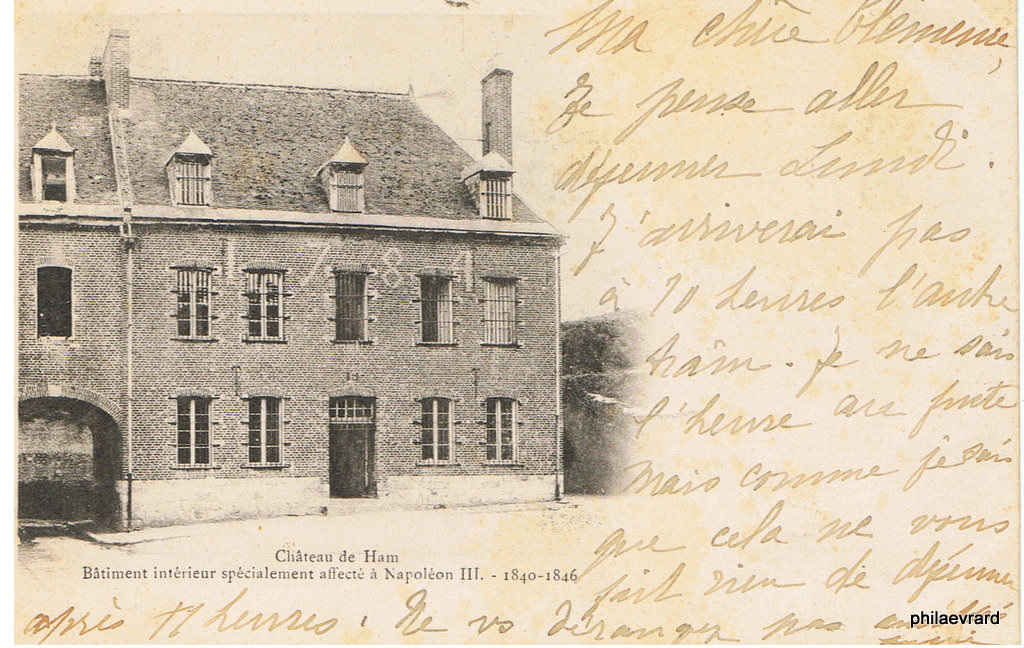 Ma chère Clémence,
Je pense aller
déjeuner Lundi.
J'arriverai pas
à 10 heures l'autre
train. Je ne sais
l'heure au juste
mais comme je sais
que cela ne vous
fait rien de déjeuner
après 11 heures. Ne vs déranger pas
Château de Ham
Bâtiment intérieur spécialement affecté à Napoléon III. - 1840-1846
philaevrard